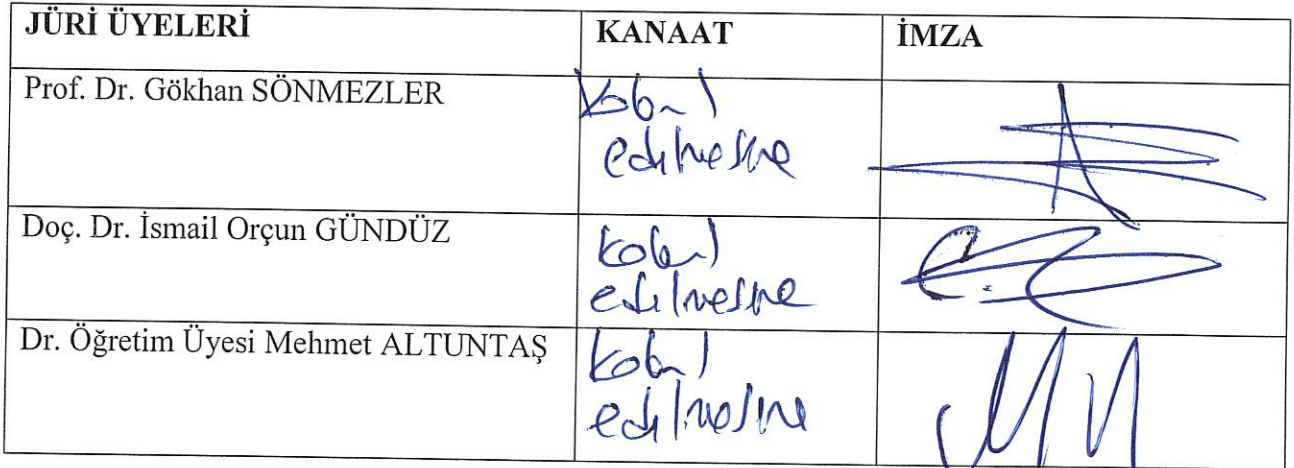 JÜRİ ÜYELERİ KANAAT İMZA
Prof. Dr. Gökhan SÖNMEZLER kabul
edilmesine
Doç. Dr. İsmail Orçun GÜNDÜZ kabul
edilmesine
Dr. Öğretim Üyesi Mehmet ALTUNTAŞ kabul
edilmesine